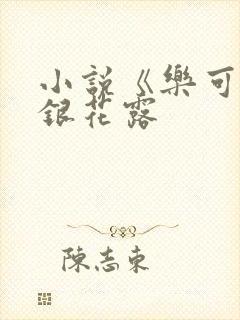 小説《樂可
銀花露
陳志東